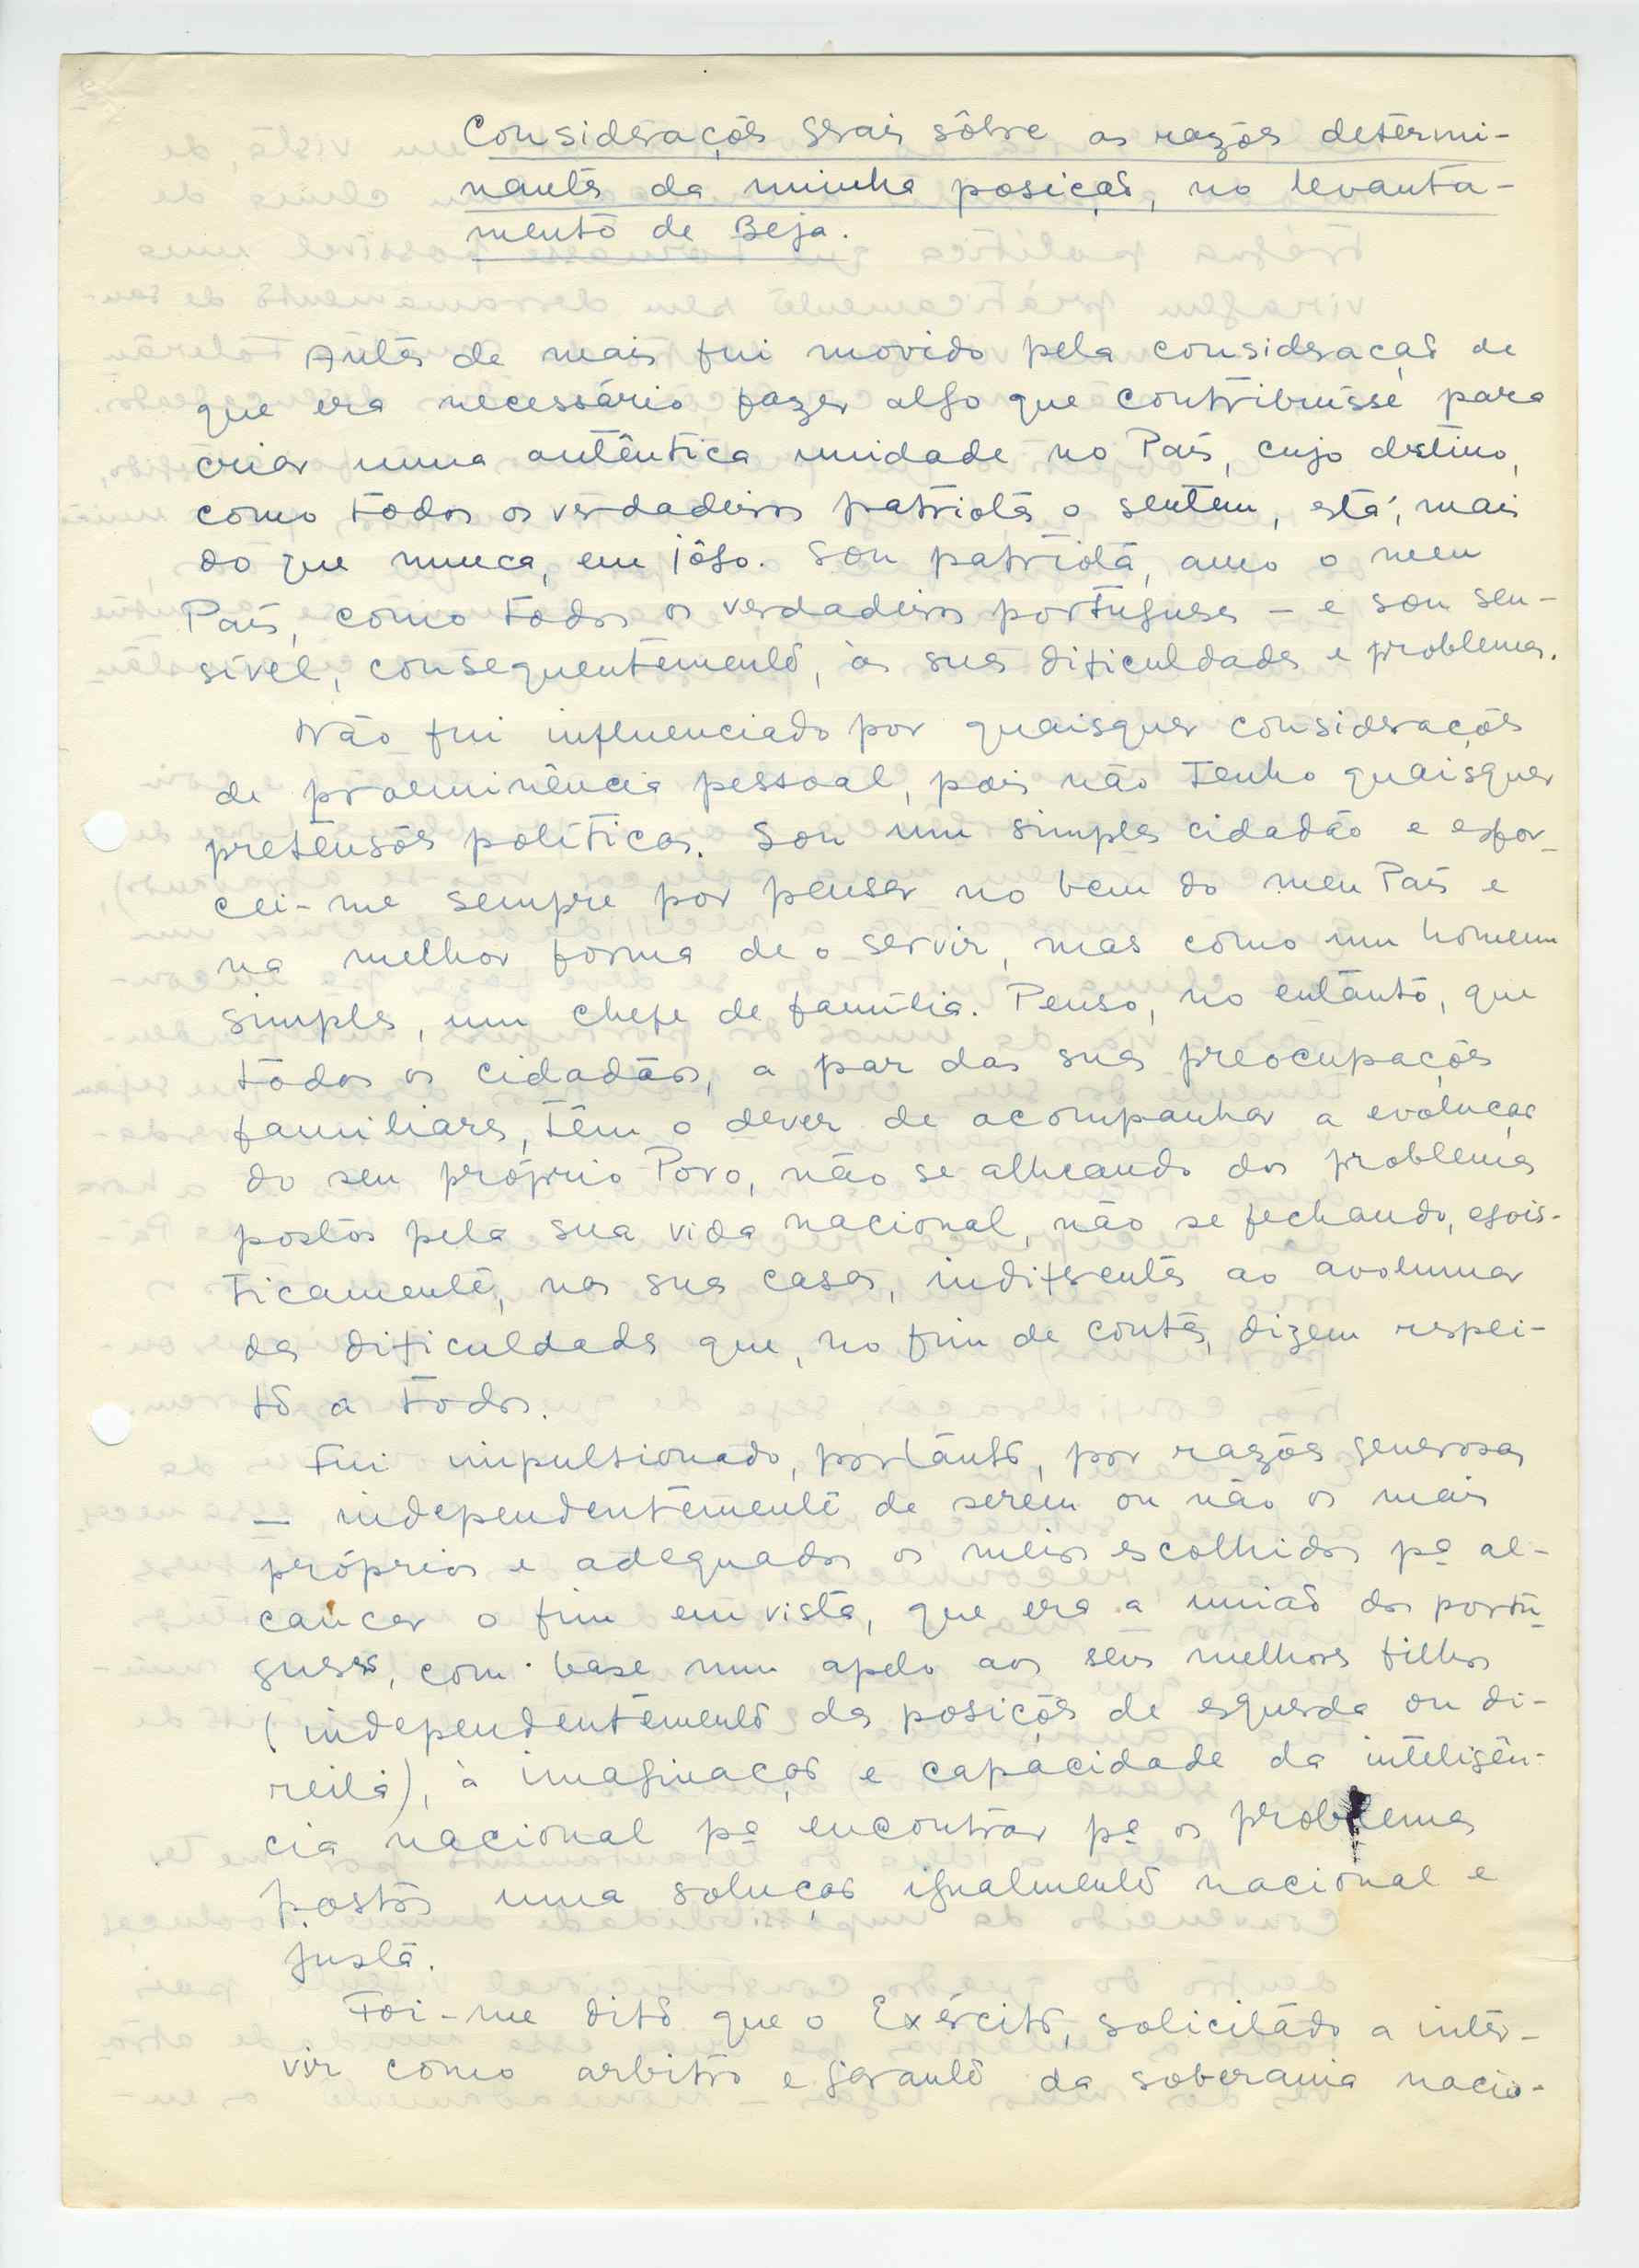 Considerações gerais sôbre as razões determi-
nantes da minha posição, no levanta-
mento de Beja.
Antes de mais fui movido pela consideração de
que era necessário fazer algo que contribuisse para
criar uma autêntica unidade no País, cujo destino,
como todos os verdadeiros patriotas o sentem, está, mais
do que nunca, em jôgo. Sou patriota, amo o meu
País, como todos os verdadeiros portugueses - e sou sen-
sível, consequentemente, às suas dificuldades e problemas.
Não fui influenciado por quaisquer considerações
de proeminência pessoal, pois não tenho quaisquer
pretensões políticas. Sou um simples cidadão e esfor-
cei-me sempre por pensar no bem do meu País e
na melhor forma de o servir, mas como um homem
simples, um chefe de família. Penso, no entanto, que
todos os cidadãos, a par das suas preocupações
familiares, têm o dever de acompanhar a evolução
do seu próprio Povo, não se alheando dos problemas
postos pela sua vida nacional, não se fechando, egois-
ticamente, nas suas casas, indiferentes ao avolumar
das dificuldades que, no fim de contas, dizem respei-
to a todos.
Fui impulsionado, portanto, por razões generosas
— independentemente de serem ou não os mais
próprios e adequados os meios escolhidos pª al-
cançar o fim em vista, que era a união dos portu-
gueses, com base num apelo aos seus melhores filhos
(independentemente das posições de esquerda ou di-
reita), à imaginação e capacidade da inteligên-
cia nacional pª encontrar pª os problemas
postos uma solução igualmente nacional e
justa.
Foi-me dito que o Exército, solicitado a inter-
vir como arbitro e garante da soberania nacio-